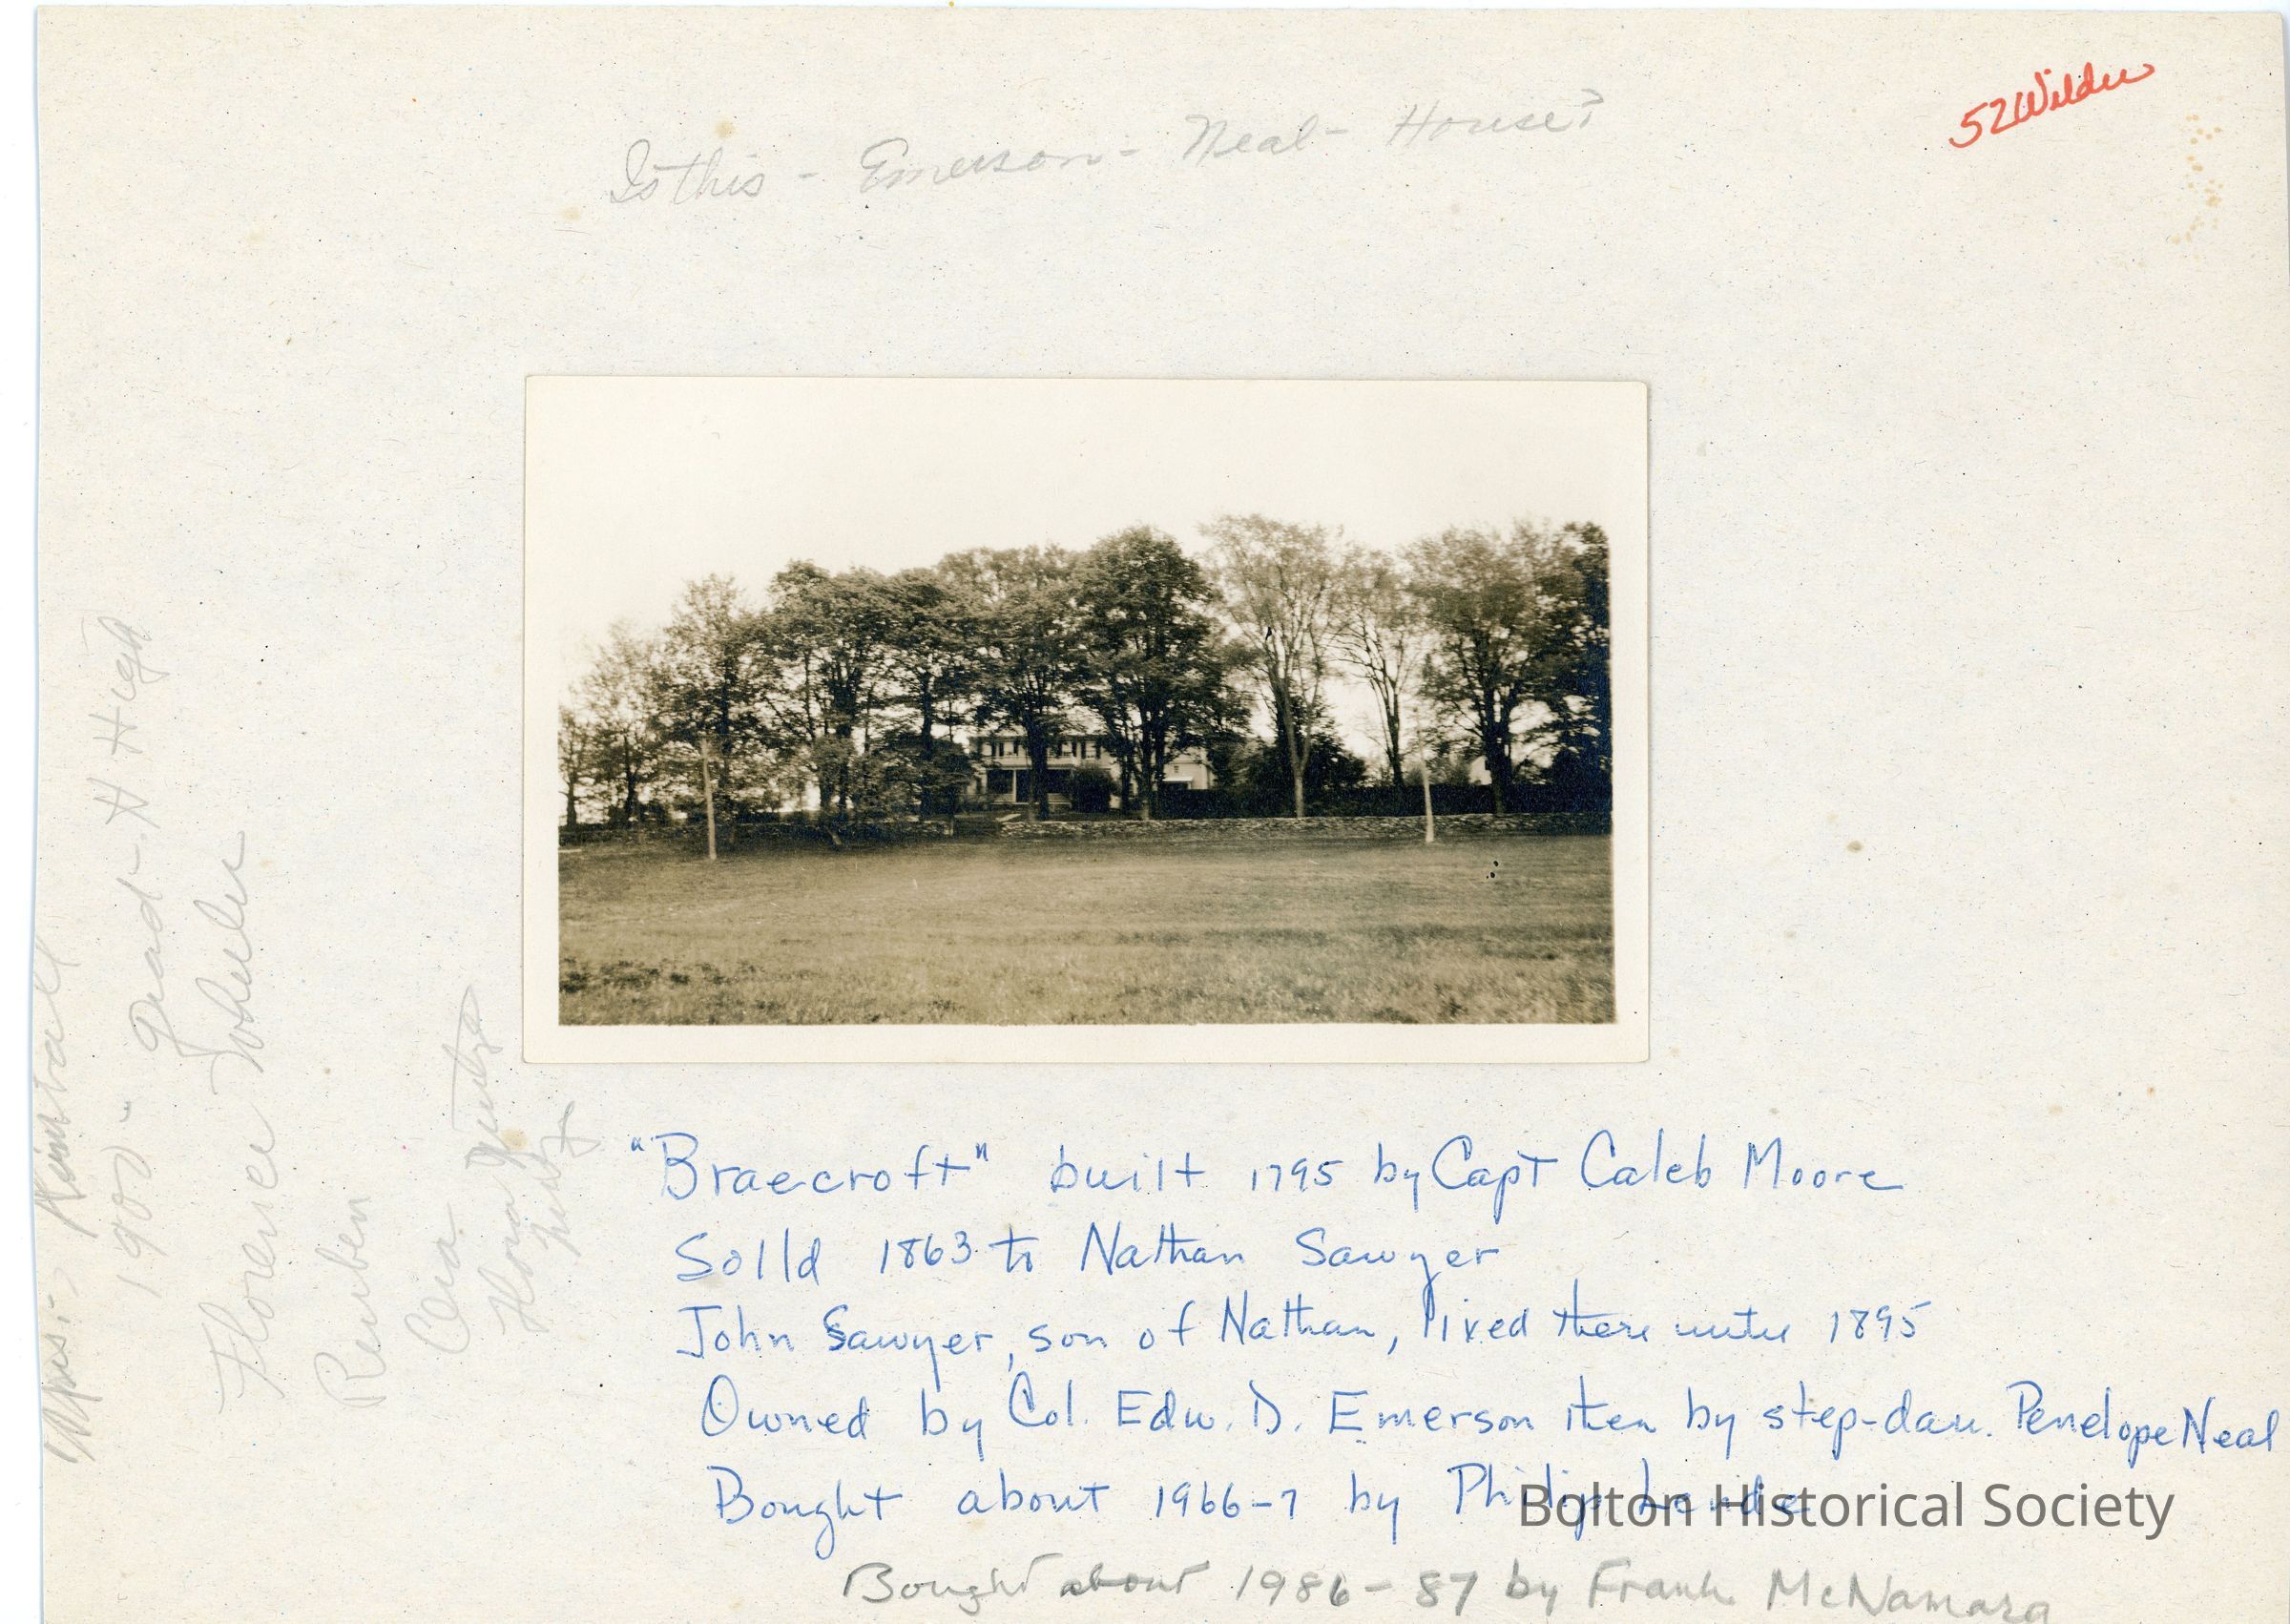 52 Wilder
Is this - Emerson - Neal - House?
"Braecroft" built 1795 by Capt Caleb Moore
Solld 1863 to Nathan Sawyer
John Sawyer, son of Nathan, lived there until 1895
Owned by Col. Edw. D. Emerson then by step-dau. Penelope Neal
Bought about 1966-7 by Philip
Bolton Historical Society
Bought about 1986-87 by Frank McNamara
Kimball
1900 - grad - H High
Florence Wheeler
Reuben